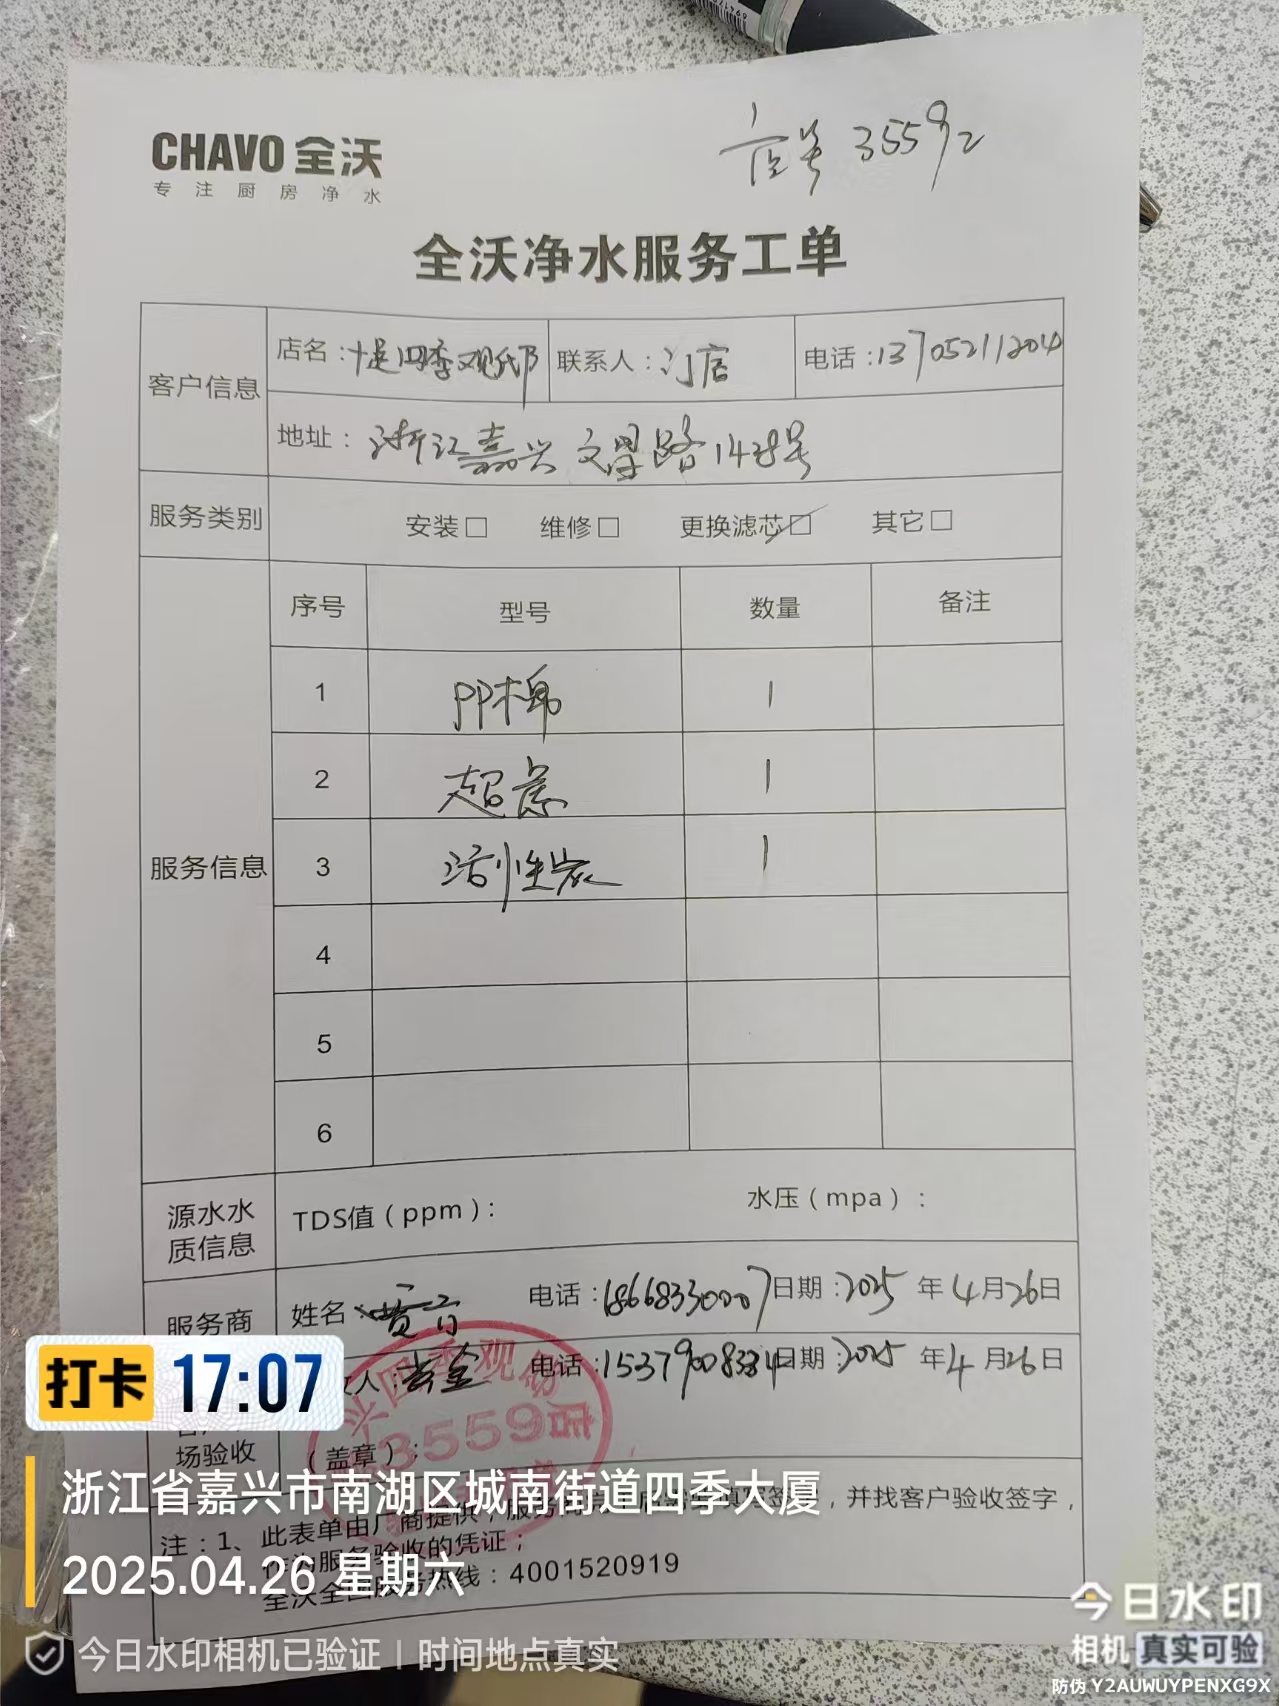 CHAVO 全沃
专注厨房净水
店号 35592
全沃净水服务工单
客户信息
店名：十足四季观邸 联系人：门店 电话：13705211204
地址：浙江嘉兴文昌路1428号
服务类别 安装□ 维修□ 更换滤芯☑ 其它□
服务信息
序号 型号 数量 备注
1 PP棉 1
2 超滤 1
3 活性炭 1
4
5
6
源水水质信息 TDS值（ppm）： 水压（mpa）：
服务商 姓名： 电话：18668330007 日期：2025年4月26日
收人： 电话：15379008334 日期：2025年4月26日
场验收 （盖章）：
兴四季观邸
3559 店
注：1、此表单由厂商提供，服务商 ，并找客户验收签字，
作为服务验收的凭证；
全沃全国服务热线：4001520919
打卡 17:07
浙江省嘉兴市南湖区城南街道四季大厦
2025.04.26 星期六
今日水印相机已验证 | 时间地点真实
今日水印
相机 真实可验
防伪 Y2AUWUYPENXG9X